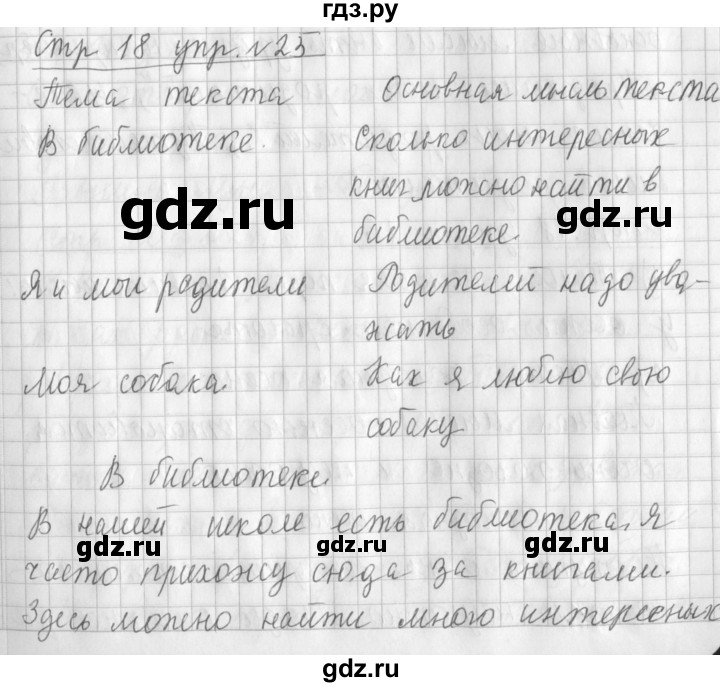 гдз.ру
Стр 18 упр. №25
Тема текста Основная мысль текста
В библиотеке. Сколько интересных
книг можно найти в
gdz.ru gdz.ru
библиотеке.
Я и мои родители Родителей надо ува-
жать
Моя собака. Как я люблю свою
собаку
В библиотеке.
В нашей школе есть библиотека, я
gdz.ru gdz.ru gdz.ru
часто прихожу сюда за книгами.
Здесь можно найти много интересных
gdz.ru